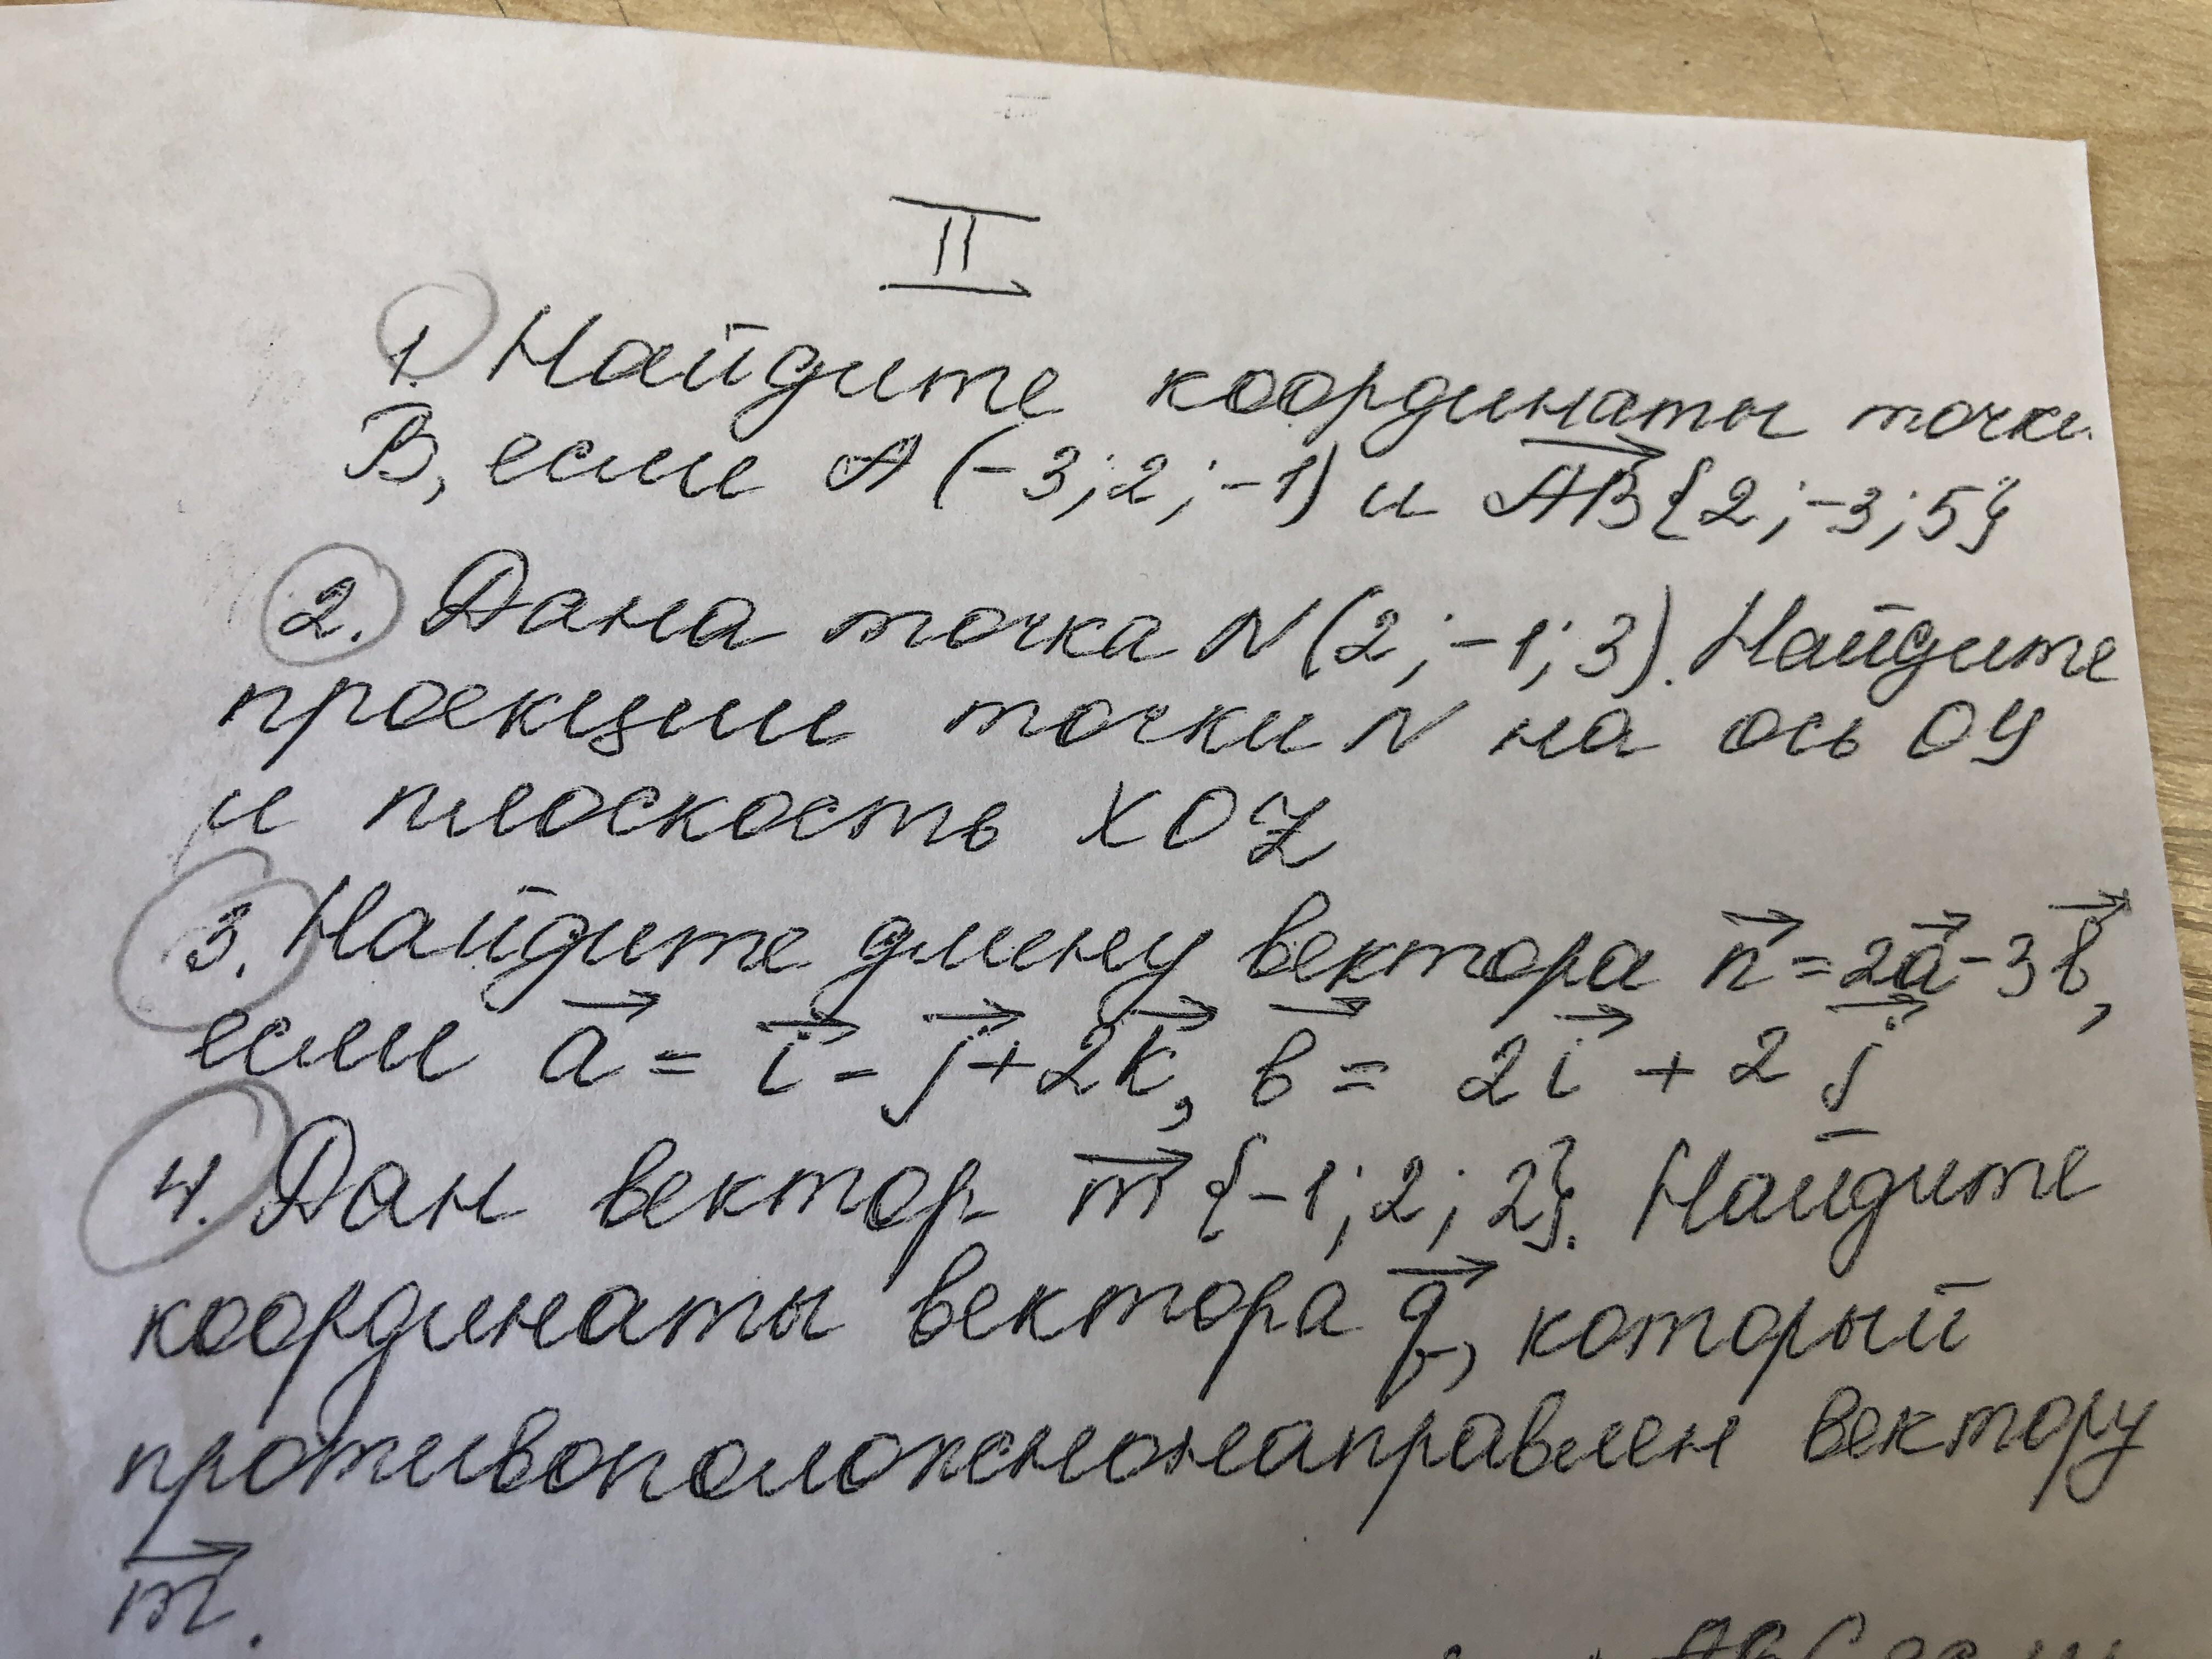 II
1. Найдите координаты точки
B, если A (-3; 2; -1) и AB→{2; -3; 5}
2. Дана точка N(2; -1; 3). Найдите
проекции точки N на ось ОУ
и плоскость XOZ
3. Найдите длину вектора n→ = 2a→ - 3b→,
если a→ = i→ - j→ + 2k→, b→ = 2i→ + 2j→
4. Дан вектор m→ {-1; 2; 2}. Найдите
координаты вектора q→, который
противоположнонаправлен вектору
m→.